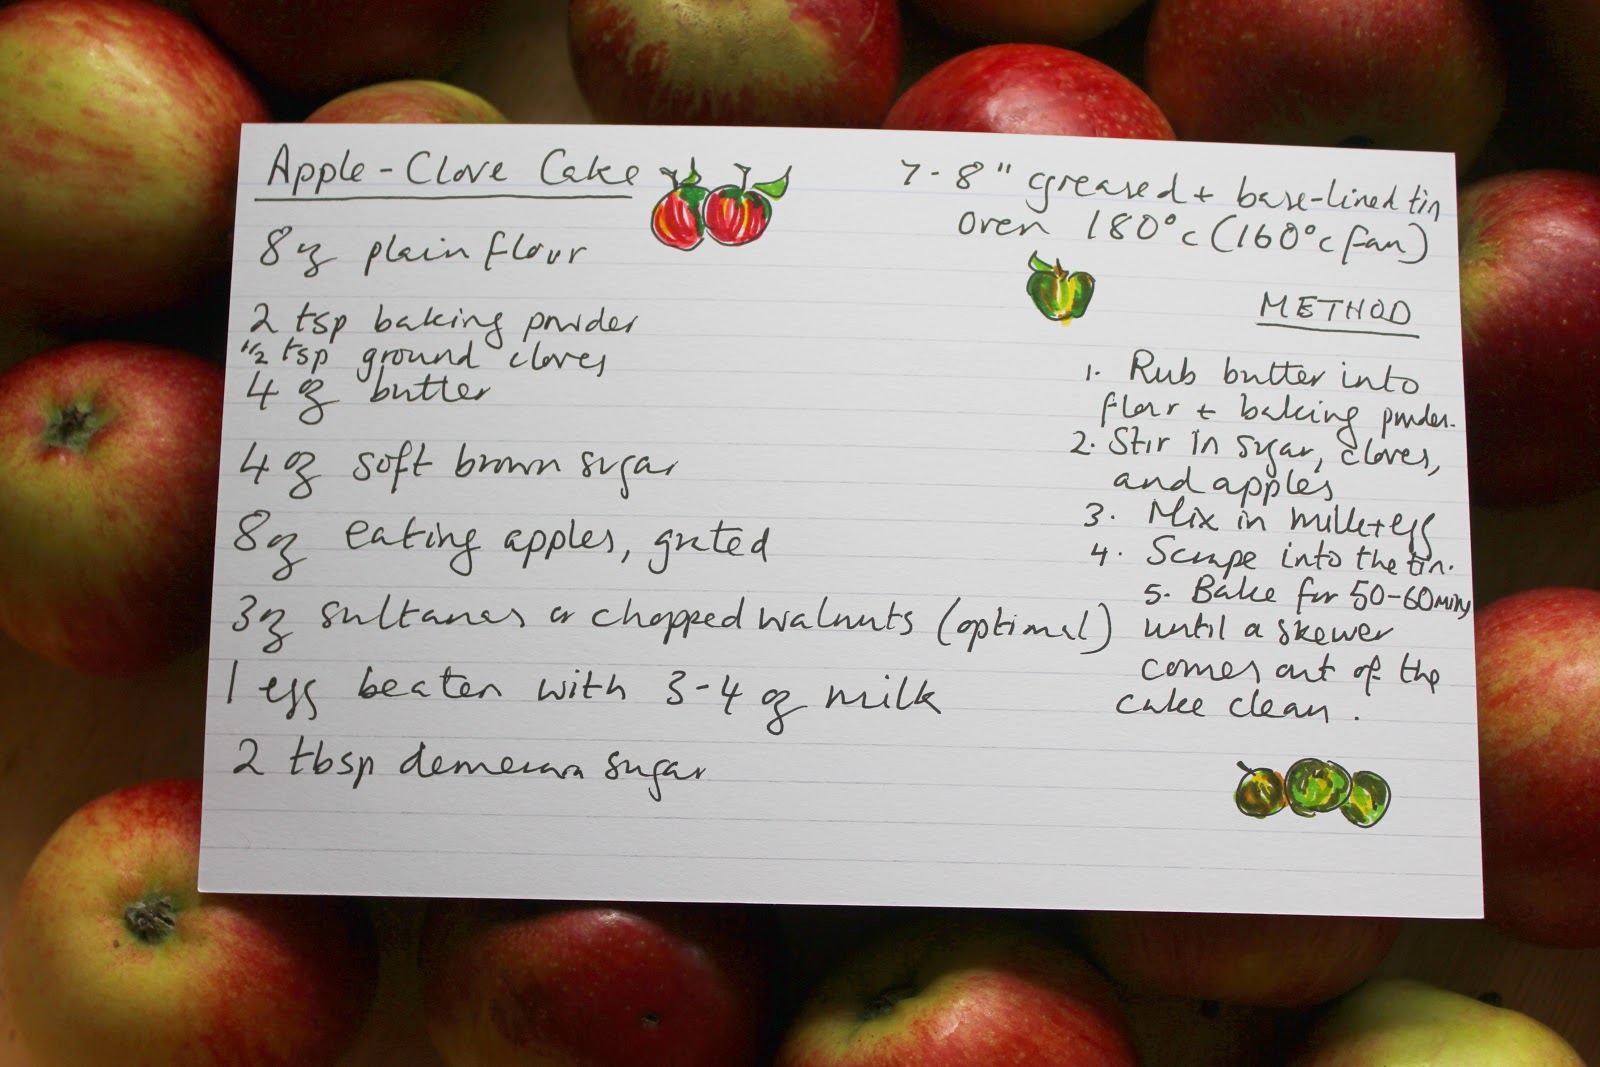 Apple-Clove Cake
8oz plain flour
2 tsp baking powder
1/2 tsp ground cloves
4 oz butter
4 oz soft brown sugar
8oz eating apples, grated
3oz sultanas or chopped walnuts (optional)
1 egg beaten with 3-4 oz milk
2 tbsp demerara sugar
7-8" greased + base-lined tin
oven 180°c (160°c fan)
METHOD
1. Rub butter into
flour + baking powder.
2. Stir in sugar, cloves,
and apples
3. Mix in milk+egg
4. Scrape into the tin.
5. Bake for 50-60mins
until a skewer
comes out of the
cake clean.